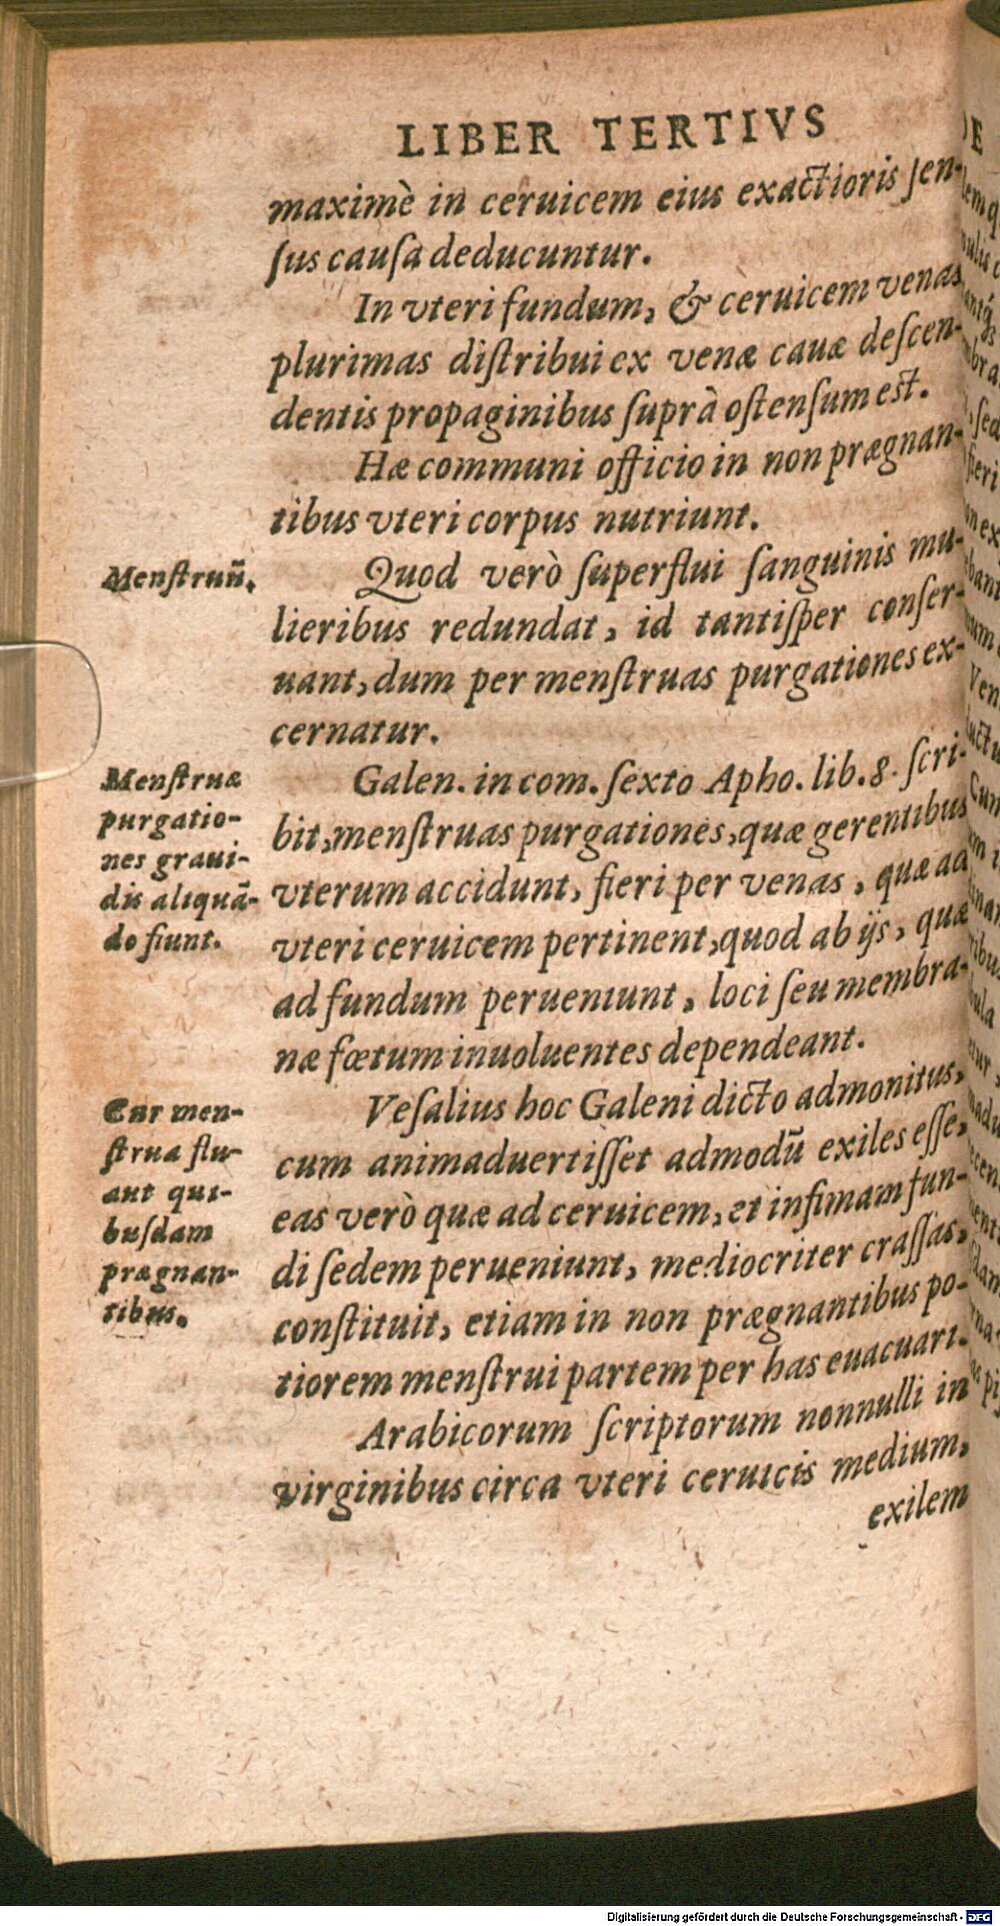 LIBER TERTIVS
maximè in ceruicem eius exactioris ſen-
ſus cauſa deducuntur.
In vteri fundum, & ceruicem venas
plurimas diſtribui ex venæ cauæ deſcen-
dentis propaginibus ſuprà oſtenſum eſt.
Hæ communi officio in non prægnan-
tibus vteri corpus nutriunt.
Menſtruū.
Quod verò ſuperflui ſanguinis mu-
lieribus redundat, id tantiſper conſer-
uant, dum per menſtruas purgationes ex-
cernatur.
Menſtruæ
purgatio-
nes graui-
dis aliquā-
do fiunt.
Galen. in com. ſexto Apho. lib. 8. ſcri-
bit, menſtruas purgationes, quæ gerentibus
vterum accidunt, fieri per venas, quæ ad
vteri ceruicem pertinent, quod ab ijs, quæ
ad fundum perueniunt, loci ſeu membra-
næ fœtum inuoluentes dependeant.
Cur men-
ſtrua flu-
ant qui-
buſdam
prægnan-
tibus.
Veſalius hoc Galeni dicto admonitus,
cum animaduertiſſet admodū exiles eſſe,
eas verò quæ ad ceruicem, et infimam fun-
di ſedem perueniunt, mediocriter craſſas,
conſtituit, etiam in non prægnantibus po-
tiorem menſtrui partem per has euacuari.
Arabicorum ſcriptorum nonnulli in
virginibus circa vteri ceruicis medium,
exilem
Digitalisierung gefördert durch die Deutsche Forschungsgemeinschaft - DFG